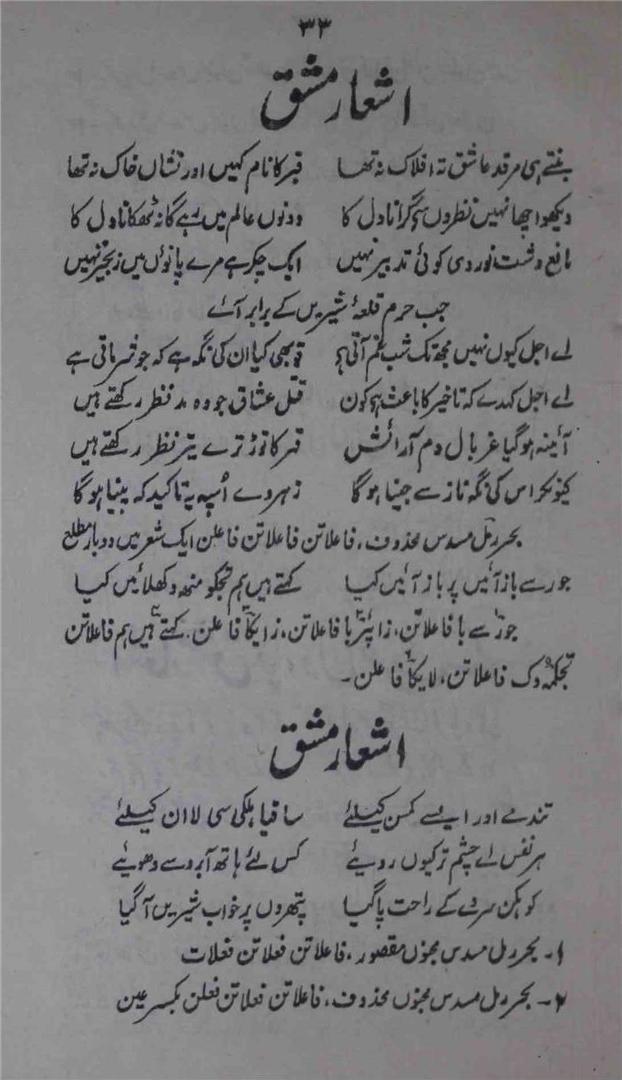 ۳۳
اشعار مشق
بنتے ہی مرقد عاشق تہ افلاک نہ تھا قبر کا نام کہیں اور نشاں خاک نہ تھا
دیکھو اچھا نہیں نظروں سے گرانا دل کا دونوں عالم میں رہے گا نہ ٹھکانا دل کا
مانع دشت نوردی کوئی تدبیر نہیں ایک چکر ہے مرے پانوں میں زنجیر نہیں
جب حرم قلعۂ شیریں کے برابر آئے
اے اجل کیوں نہیں مجھ تک شب غم آتی ہے تو بھی کیا ان کی نگہ ہے کہ جو شرماتی ہے
اے اجل کہدے کہ تاخیر کا باعث ہے کون قتل عشاق جو وہ مد نظر رکھتے ہیں
آئینہ ہو گیا غربال دم آرائش قہر کا توڑ ترے تیر نظر رکھتے ہیں
کیونکر اس کی نگہ ناز سے جینا ہوگا زہر دے اس پہ یہ تاکید کہ پینا ہوگا
بحر رمل مسدس محذوف، فاعلاتن فاعلاتن فاعلن ایک شعر میں دو بار مطلع
جور سے باز آئیں پر باز آئیں کیا کہتے ہیں ہم تجکو منھ دکھلائیں کیا
جور سے با فاعلاتن، زا پر با فاعلاتن، زا یکا فاعلن. کہتے ہیں ہم فاعلاتن
تجکمہ دک فاعلاتن، لایکا فاعلن۔
اشعار مشق
تند مے اور ایسے کمسن کیلئے ساقیا ہلکی سی لا ان کیلئے
ہر نفس اے چشم تر کیوں رویئے کس لئے ہاتھ آبرو سے دھویئے
کوہکن سر دے کے راحت پا گیا پتھروں پر خواب شیریں آ گیا
۱۔ بحر رمل مسدس مخبون مقصور، فاعلاتن فعلاتن فعلات
۲۔ بحر رمل مسدس مخبون محذوف، فاعلاتن فعلاتن فعلن بکسر عین